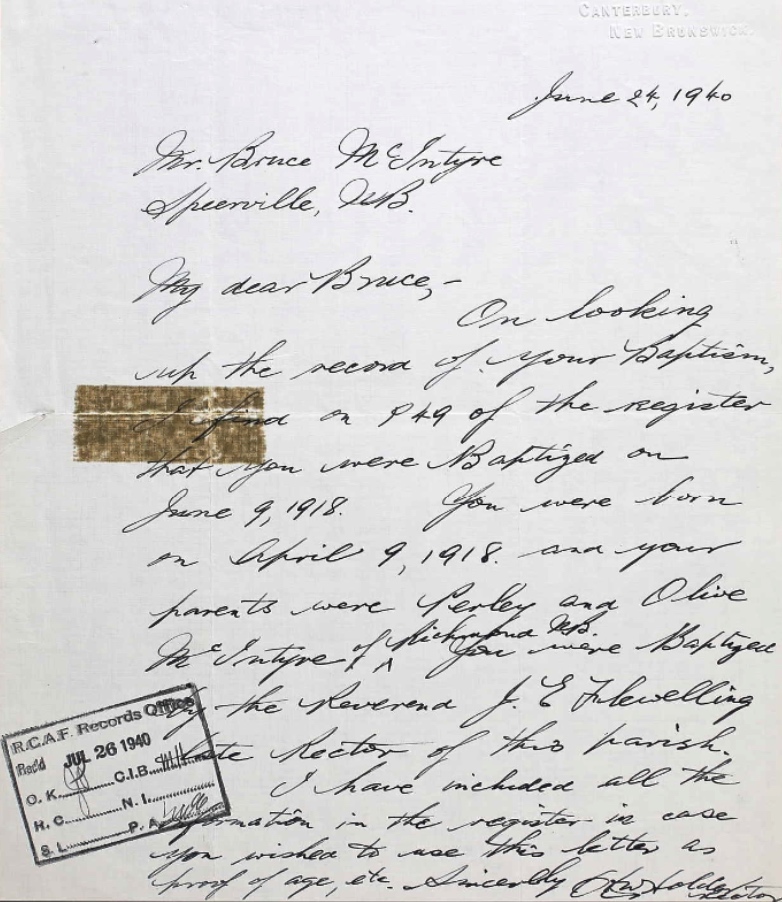 CANTERBURY,
NEW BRUNSWICK.
June 24, 1940
Mr. Bruce McIntyre
Speerville, N.B.
My dear Bruce,-
On looking
up the record of your Baptism,
I find on P 49 of the register
that you were Baptized on
June 9, 1918. You were born
on April 9, 1918. and your
parents were Perley and Olive
of Richmond N.B.
McIntyre ^ You were Baptized
by the Reverend J. E. Flewelling
late Rector of this parish.
I have included all the
information in the register in case
you wished to use this letter as
proof of age, etc. Sincerely Holder
Rector
R.C.A.F. Records Office
Rec'd JUL 26 1940
O. K. C.I.B.
R. C. N. I.
S. L. P. A.